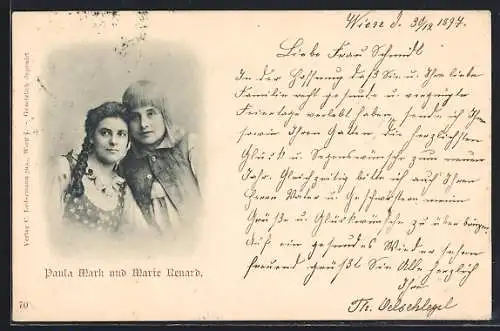 Verlag C. Ledermann jun., Wien I. Gesetzlich deponirt
Paula Mark und Marie Renard.
70
Wiese d. 30/12 1897.
Liebe Frau Schmidt
In der Hoffnung daß Sie u Ihre liebe
Familie recht gesunde u vergnügte
Feiertage verlebt haben, sende ich Ihnen
sowie Ihrem Gatten, die herzlichsten
Glück u. Segenswünsche zum neuen
Jahr. Gleichzeitig bitte ich auch Ihrem
Herrn Vater u Geschwistern meine
Grüße u Glückwünsche zu überbringen.
Auf ein gesundes Wieder sehen
freuend grüßt Sie Alle herzlich
Ihre
Th. Oelschlegel